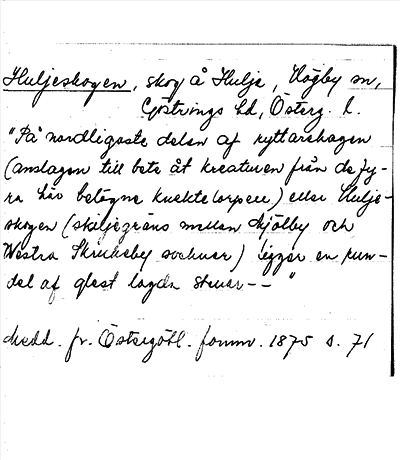 Huljeskogen, skog å Hulje, Högby sn,
Göstrings hd, Österg. l.
"På nordligaste delen af ryttarehagen
(anslagen till bete åt kreaturen från de fy-
ra här belägne knektetorpen) eller Hulje-
skogen (skiljegräns mellan Mjölby och
Westra Skrukeby socknar) ligger en run-
del af glest lagda stenar -- "
Medd. fr. Östergötl. fornm. 1875 s. 71